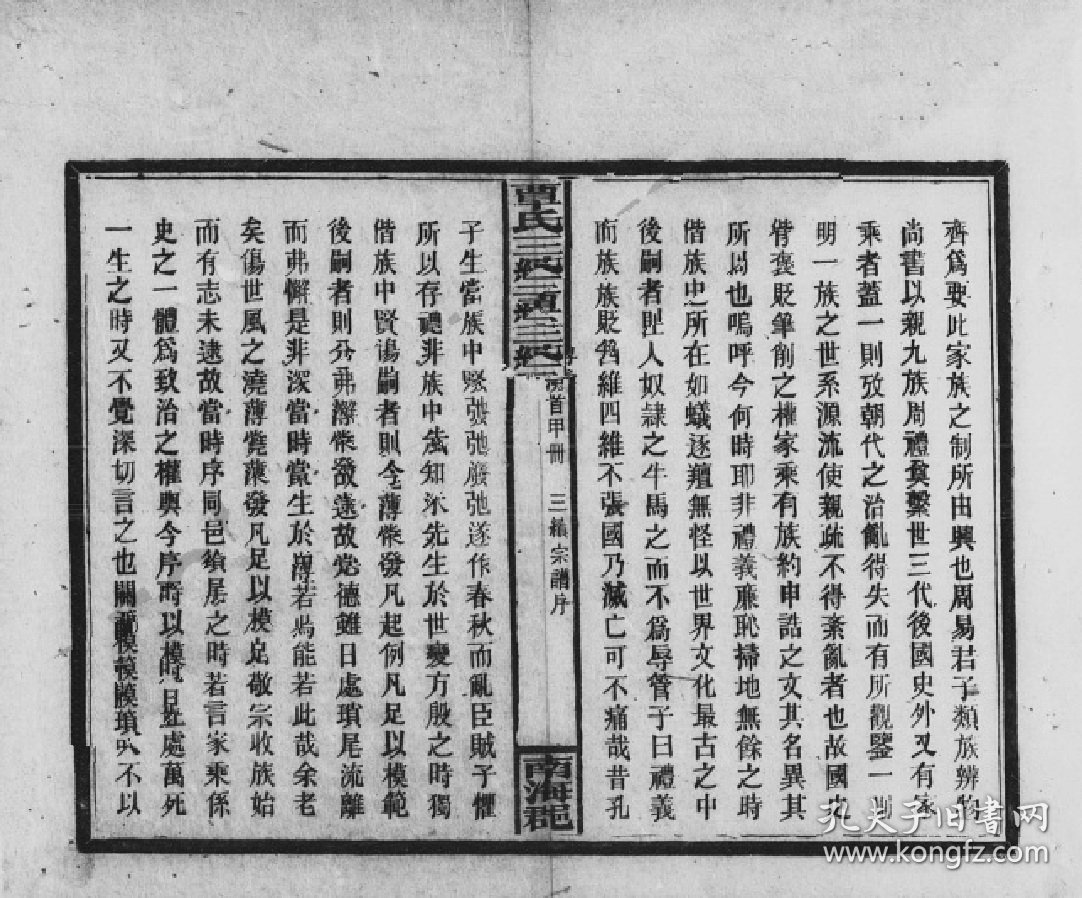 齊爲要此家族之制所由興也周易君子類族辨物
尚書以親九族周禮奠繫世三代後國史外又有家
乘者蓋一則攷朝代之治亂得失而有所觀鑒一則
明一族之世系源流使親疏不得紊亂者也故國史
有褒貶筆削之權家乘有族約申誥之文其名異其
所以也嗚呼今何時耶非禮義廉恥掃地無餘之時
偕族中所在如蟻逐羶無怪以世界文化最古之中
後嗣者卽人奴隷之牛馬之而不爲辱管子曰禮義
而族族貶爲維四維不張國乃滅亡可不痛哉昔孔
曹氏三
首甲冊
三續宗譜序
南海郡
子生當族中緊弛廢弛遂作春秋而亂臣賊子懼
所以存禮非族中知先生於世變方殷之時獨
偕族中賢嗣者則今薄發凡起例凡足以模範
後嗣者則弗懈發遠故德雖日處瑣尾流離
而弗懈是非深當時當生於若焉能若此哉余老
矣傷世風之澆薄發凡足以模敬宗收族始
而有志未逮故當時序同邑居之時若言家乘係
史之一體爲致治之權輿今序時以模日處萬死
一生之時又不覺深切言之也關瑣不以
孔夫子旧书网
www.kongfz.com